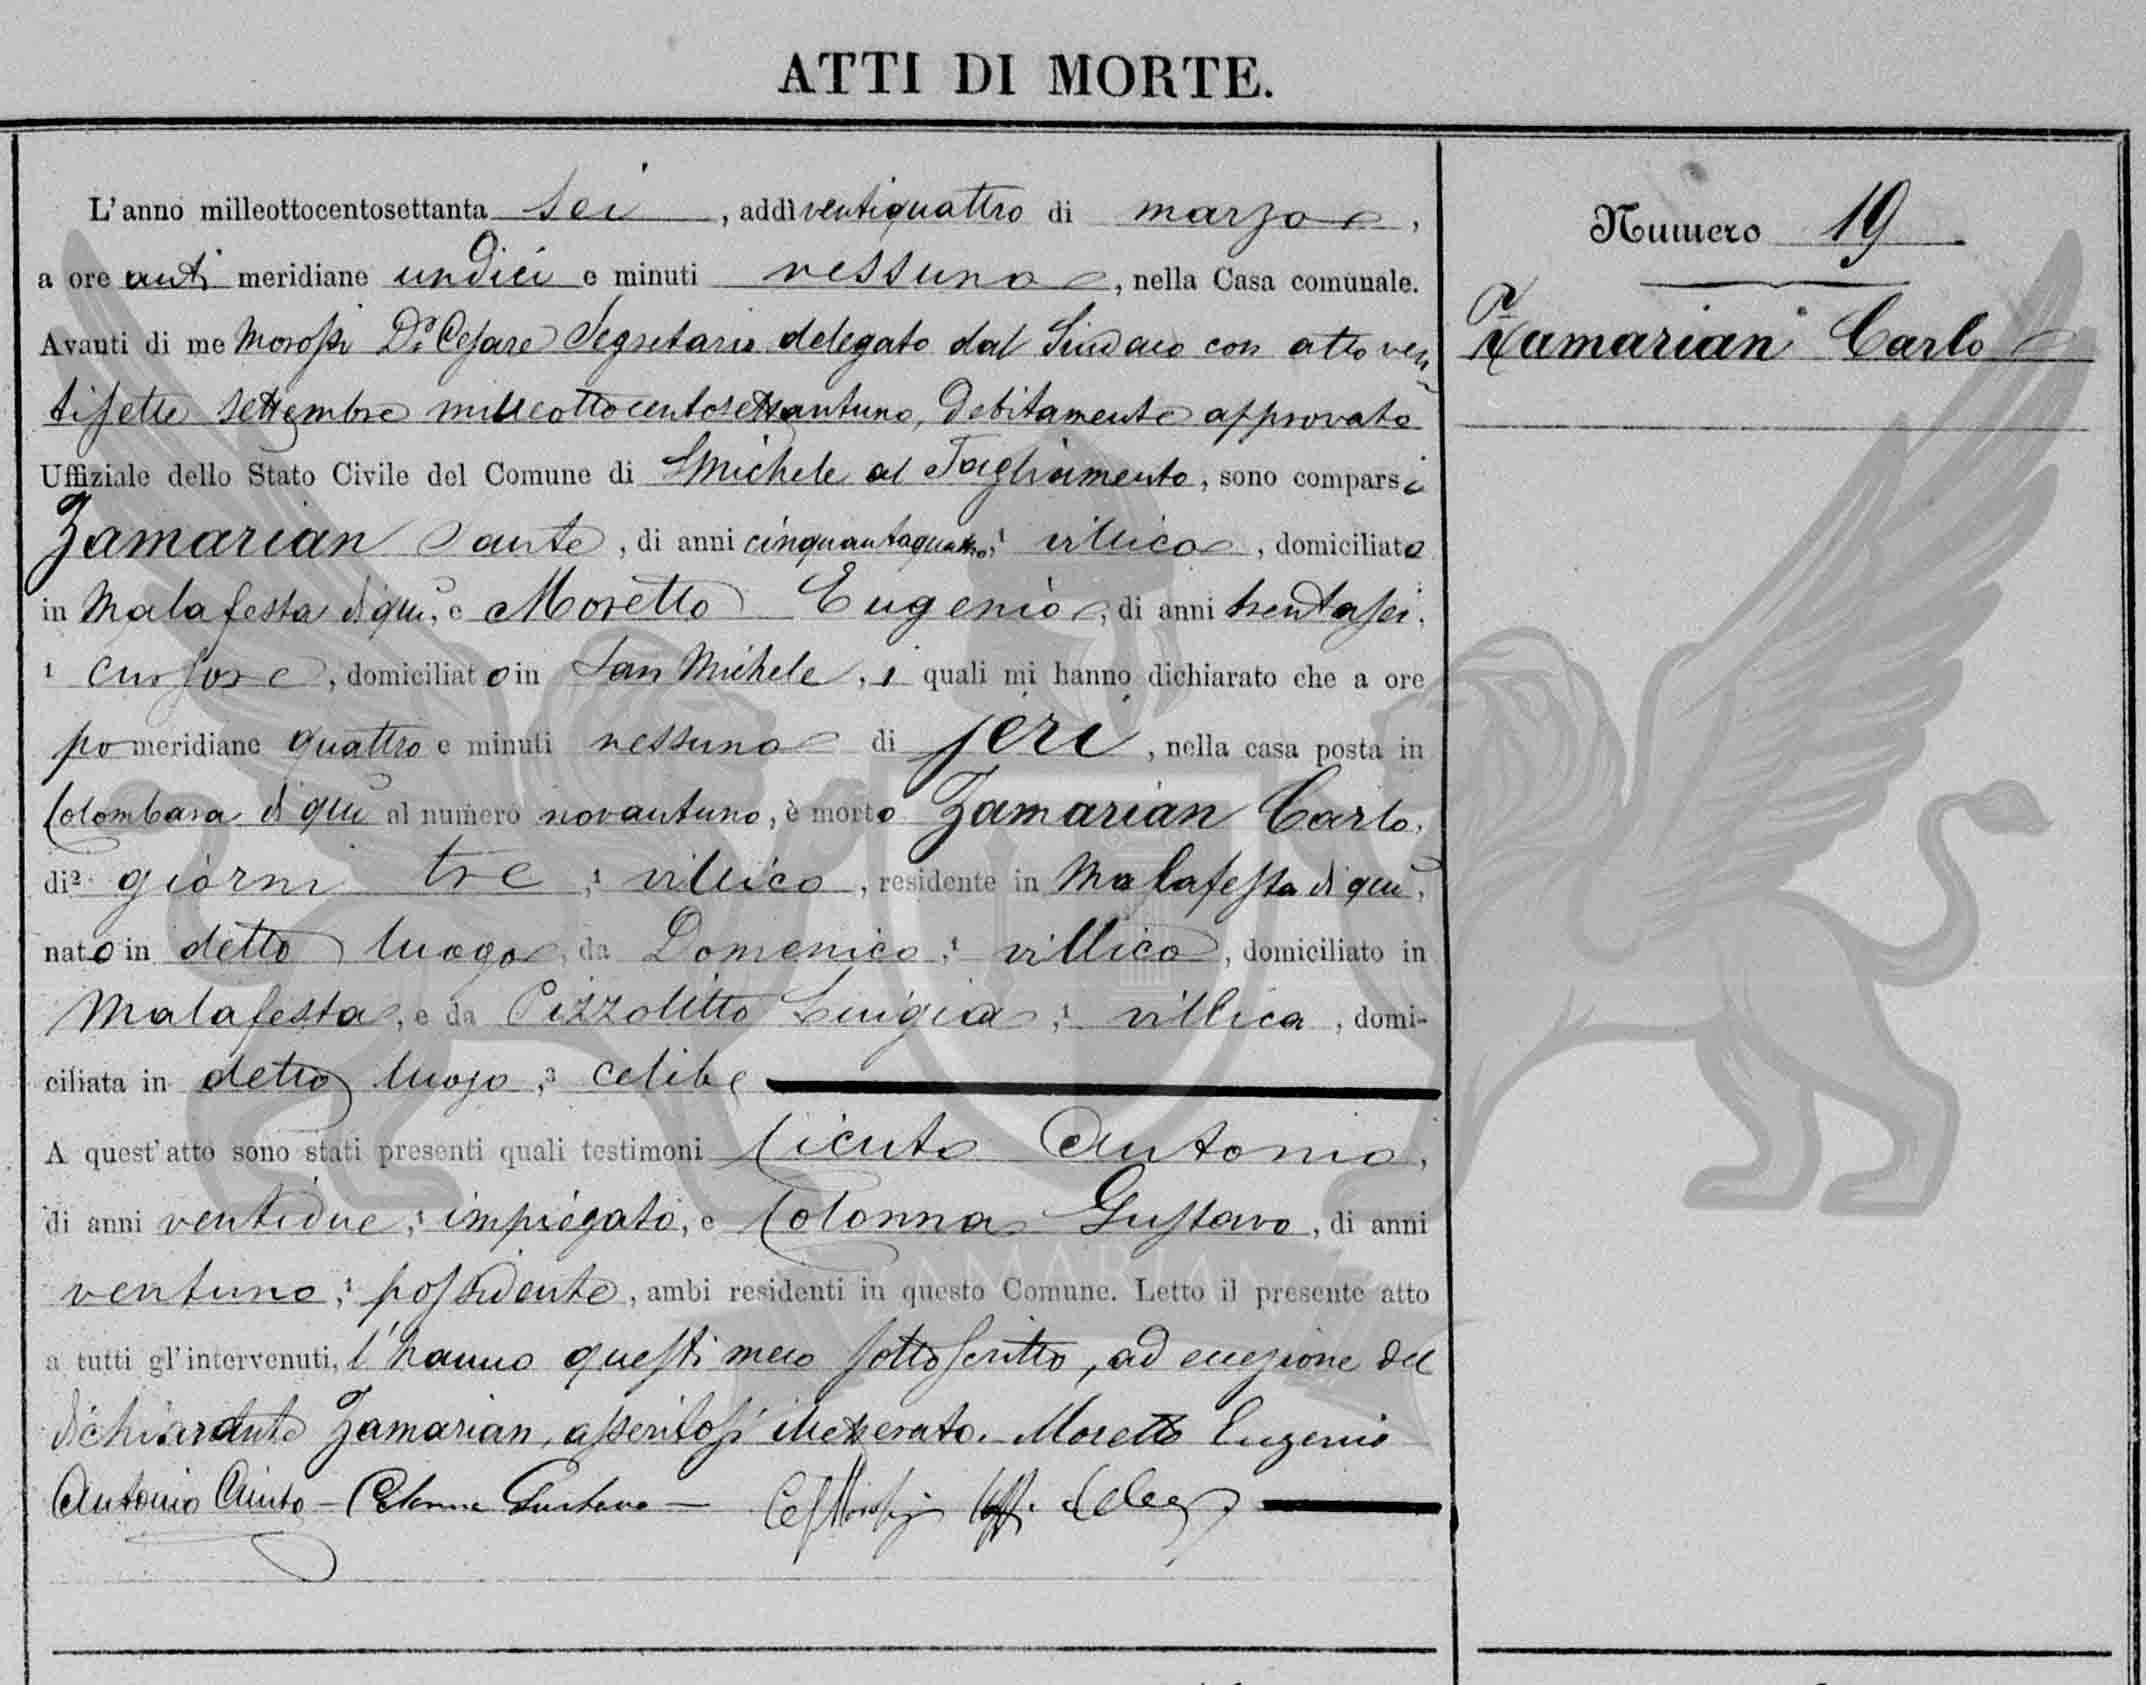 ATTI DI MORTE.
Numero 19
Zamarian Carlo
L'anno milleottocentosettanta sei, addì ventiquattro di marzo,
a ore anti meridiane undici e minuti nessuno, nella Casa comunale.
Avanti di me Morossi Dr. Cesare Segretario delegato dal Sindaco con atto ven
tisette settembre milleottocentosettantuno, debitamente approvato
Uffiziale dello Stato Civile del Comune di S Michele al Tagliamento, sono comparsi
Zamarian Sante, di anni cinquantaquattro,¹ villico, domiciliato
in Malafesta di qui, e Moretto Eugenio, di anni trentasei,
¹ cursore, domiciliato in San Michele, i quali mi hanno dichiarato che a ore
pomeridiane quattro e minuti nessuno di jeri, nella casa posta in
Colombara di qui al numero novantuno, è morto Zamarian Carlo,
di² giorni tre,¹ villico, residente in Malafesta di qui,
nato in detto luogo, da Domenico,¹ villico, domiciliato in
Malafesta, e da Pizzolitto Luigia,¹ villica, domi-
ciliata in detto luogo,³ celibe
A quest'atto sono stati presenti quali testimoni Cicuto Antonio,
di anni ventidue,¹ impiegato, e Colonna Gustavo, di anni
ventuno,¹ possidente, ambi residenti in questo Comune. Letto il presente atto
a tutti gl'intervenuti, l'hanno questi meco sottoscritto, ad eccezione del
dichiarante Zamarian, asseritosi illetterato. Moretto Eugenio
Antonio Cicuto – Colonna Gustavo –
ZAMARIAN